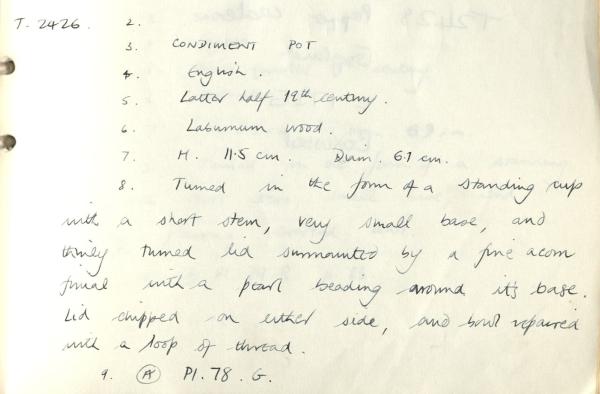 T. 2426. 2.
3. CONDIMENT POT
4. English.
5. Latter half 19th century.
6. Laburnum wood.
7. H. 11.5 cm. Diam. 6.1 cm.
8. Turned in the form of a standing cup
with a short stem, very small base, and
thinly turned lid surmounted by a fine acorn
finial with a pearl beading around it's base.
Lid chipped on either side, and bowl repaired
with a loop of thread.
9. (A) Pl. 78. G.